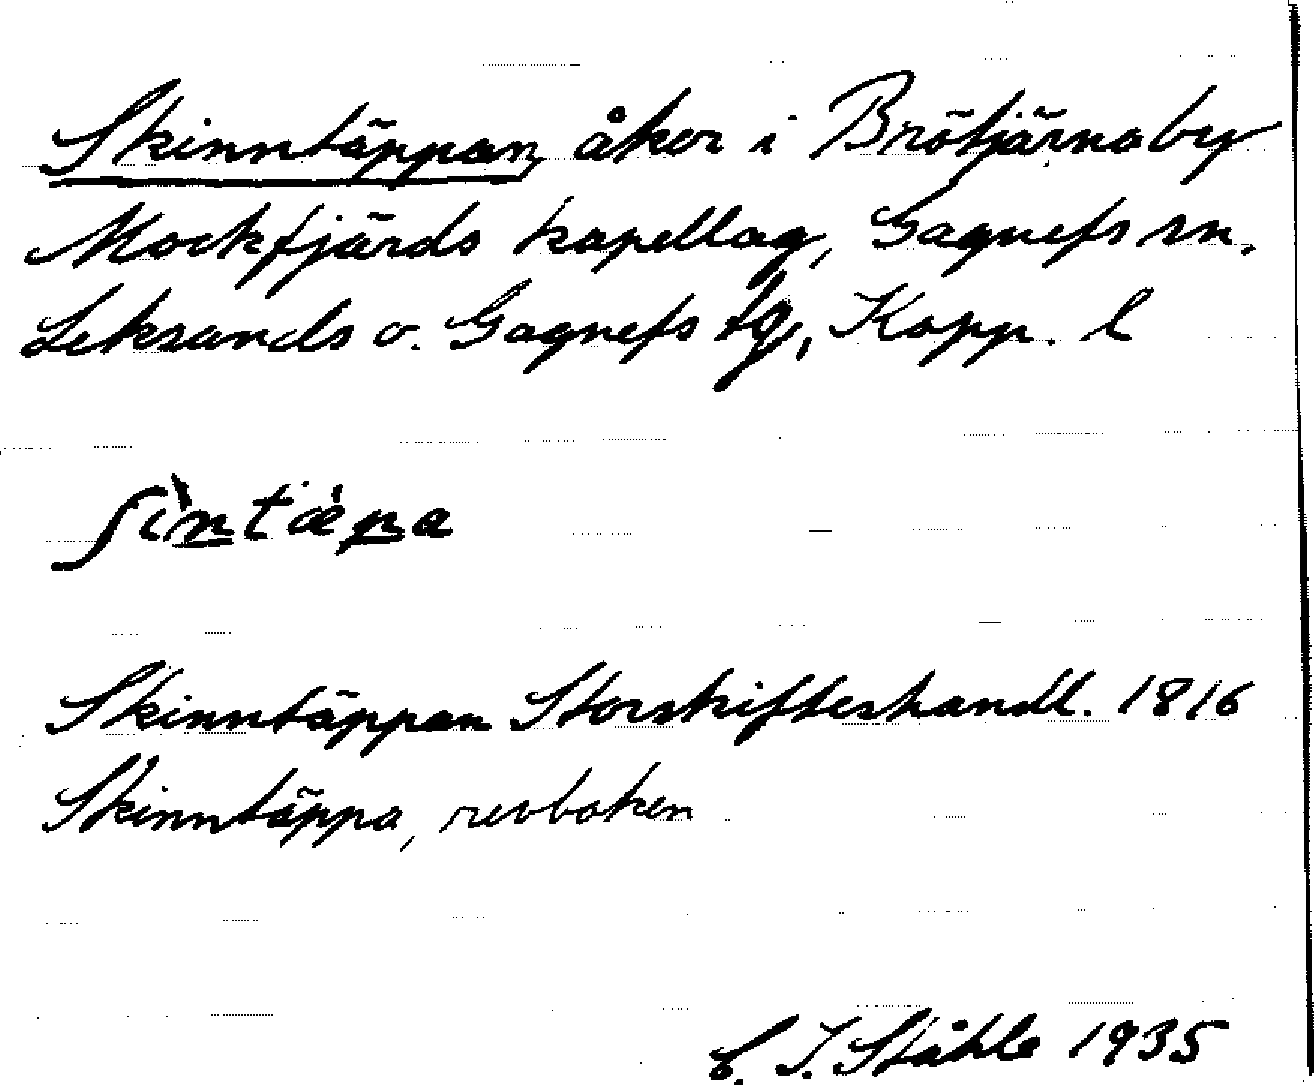 Skinntäppan, åker i Brötjärna by
Mockfjärds kapellag, Gagnefs sn.
Leksands o. Gagnefs tg, Kopp. l
ʃìntæ̀pa
Skinntäppan Storskifteshandl. 1816
Skinntäppa, revboken
C. I. Ståhle 1935